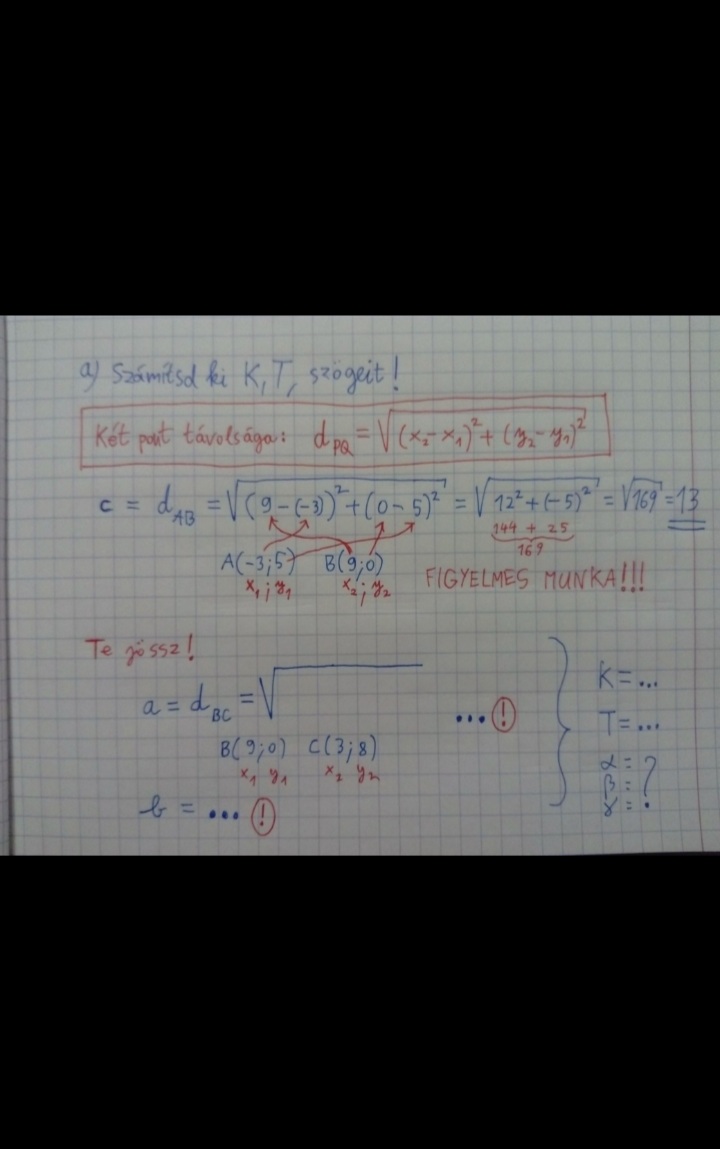 a) Számítsd ki K, T, szögeit!
Két pont távolsága: d_PQ = √((x₂-x₁)² + (y₂-y₁)²)
c = d_AB = √((9-(-3))² + (0-5)²) = √(12² + (-5)²) = √169 = 13
144 + 25
169
A(-3;5) B(9;0)
x₁; y₁ x₂; y₂
FIGYELMES MUNKA!!!
Te jössz!
a = d_BC = √ ... !
B(9;0) C(3;8)
x₁ y₁ x₂ y₂
b = ... !
K = ...
T = ...
α = ?
β =
γ =